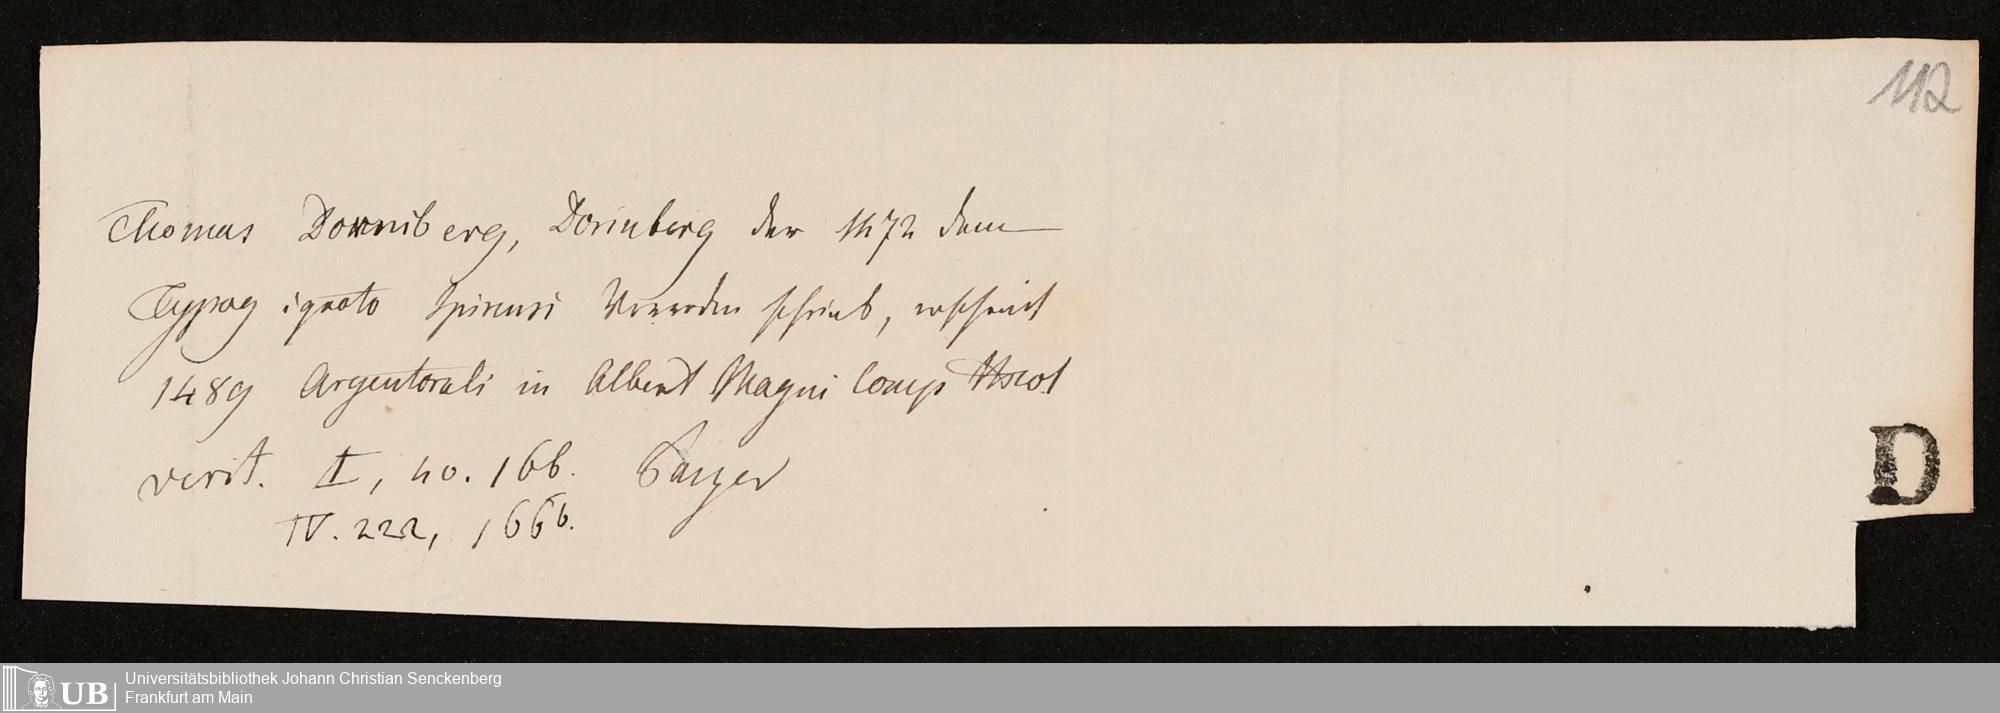 112
Thomas Dorniberg, Dorinberg der 1472 dem
Typog ignoto Spirensi Vorreden schrieb, erscheint
1489 Argentorati in Albert Magni Comp
verit. II, no. 166. Panzer
IV. 222, 166b.
D
UB
Universitätsbibliothek Johann Christian Senckenberg
Frankfurt am Main